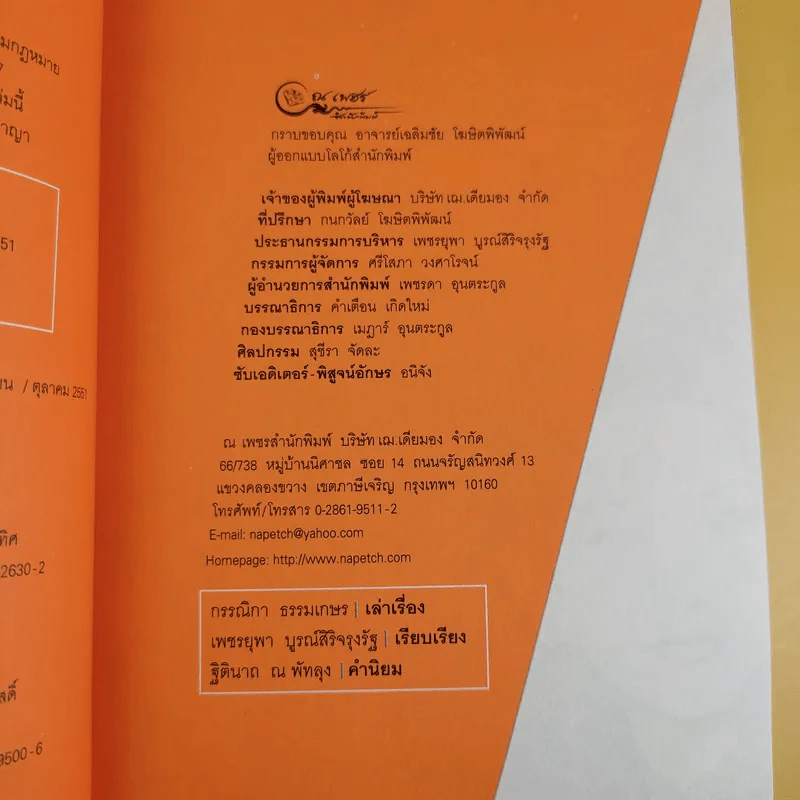 มกฎหมาย
ณ เพชร
สำนักพิมพ์
กราบขอบคุณ อาจารย์เฉลิมชัย โฆษิตพิพัฒน์
ผู้ออกแบบโลโก้สำนักพิมพ์
เจ้าของผู้พิมพ์ผู้โฆษณา บริษัท เฌ.เดียมอง จำกัด
ที่ปรึกษา กนกวัลย์ โฆษิตพิพัฒน์
ประธานกรรมการบริหาร เพชรยุพา บูรณ์สิริจรุงรัฐ
กรรมการผู้จัดการ ศรีโสภา วงศาโรจน์
ผู้อำนวยการสำนักพิมพ์ เพชรดา อุนตระกูล
บรรณาธิการ คำเตือน เกิดใหม่
กองบรรณาธิการ เมฏาร์ อุนตระกูล
ศิลปกรรม สุชีรา จัดละ
ซับเอดิเตอร์-พิสูจน์อักษร อนิจัง
51
/ ตุลาคม 2551
ณ เพชรสำนักพิมพ์ บริษัท เฌ.เดียมอง จำกัด
66/738 หมู่บ้านนิศาชล ซอย 14 ถนนจรัญสนิทวงศ์ 13
แขวงคลองขวาง เขตภาษีเจริญ กรุงเทพฯ 10160
โทรศัพท์/โทรสาร 0-2861-9511-2
E-mail: napetch@yahoo.com
Homepage: http://www.napetch.com
2630-2
กรรณิกา ธรรมเกษร | เล่าเรื่อง
เพชรยุพา บูรณ์สิริจรุงรัฐ | เรียบเรียง
ฐิตินาถ ณ พัทลุง | คำนิยม
9500-6